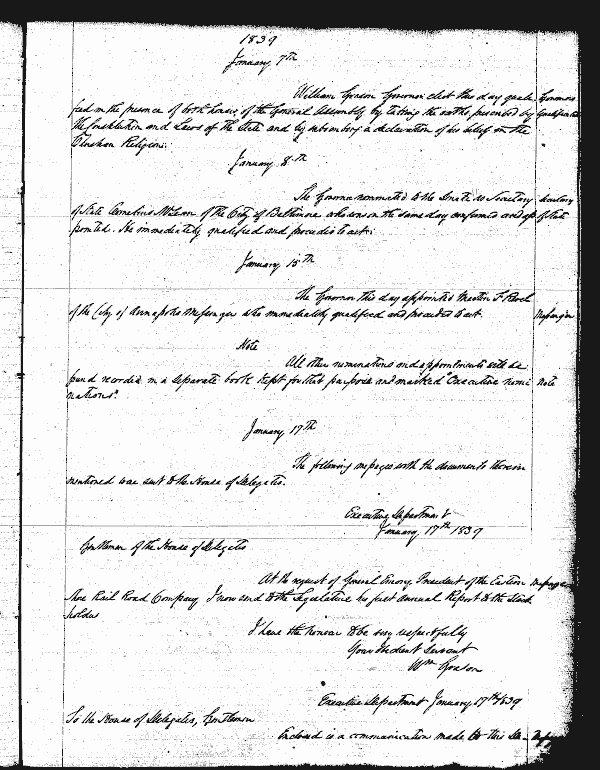 1839
January 7th
William Grason Governor elect this day quali Governor
fied in the presence of both houses of the General Assembly by taking the oaths prescribed by Qualified
the Constitution and Laws of the State and by subscribing a declaration of his belief in the
Christian Religion.
January 8th
The Governor nominated to the Senate as Secretary Secretary
of State Cornelius McLean of the City of Baltimore who was on the same day confirmed and ap of State
pointed. He immediately qualified and proceeded to act.
January 15th
The Governor this day appointed Martin F. Revell
of the City of Annapolis Messenger who immediately qualified and proceeded to act Messenger
Note
All other nominations and appointments will be
found recorded in a separate book kept for that purpose and marked "Executive nomi Note
nations"
January 17th
The following messages with the documents therein
mentioned was sent to the House of Delegates.
Executive Department
January 17th 1839
Gentlemen of the House of Delegates
At the request of General Emory, President of the Eastern Messages
Shore Rail Road Company I now send to the Legislature his first annual Report to the Stock
holders
I have the honour to be very respectfully
Your Obedient Servant
Wm Grason
Executive Department January 17th 1839
To the House of Delegates, Gentlemen
Enclosed is a communication made to this De-